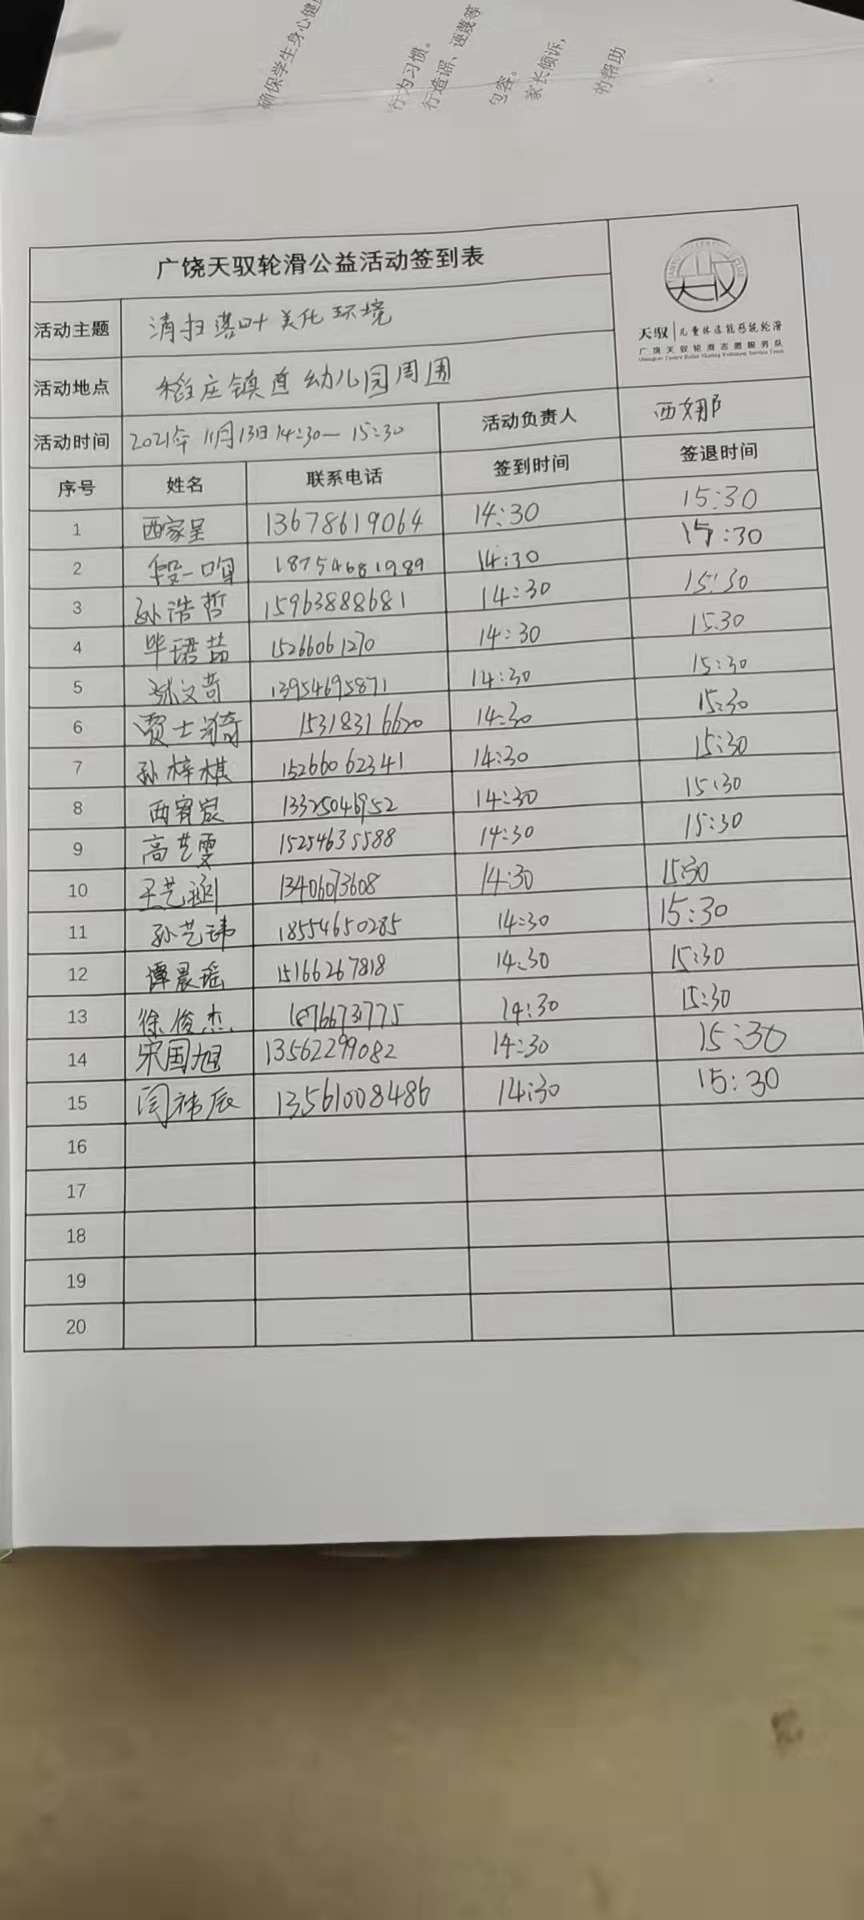 确保学生身心健康
行为习惯。
行造谣、诬蔑等
包容。
家长倾诉,
的帮助
广饶天驭轮滑公益活动签到表
天驭 儿童体适能形统轮滑
广饶天驭轮滑志愿服务队
活动主题 清扫落叶 美化环境
活动地点 稻庄镇直幼儿园周围
活动时间 2021年11月13日14:30—15:30 活动负责人 西娜
序号 姓名 联系电话 签到时间 签退时间
1 西家呈 13678619064 14:30 15:30
2 段一鸣 18754681989 14:30 15:30
3 孙浩哲 15963888681 14:30 15:30
4 毕珺喆 15266061270 14:30 15.30
5 张文苛 13954695871 14:30 15:30
6 贾士漪 15318316620 14:30 15:30
7 孙梓棋 15266062341 14:30 15:30
8 西宥宸 13325046952 14:30 15:30
9 高艺雯 15254635588 14:30 15:30
10 王艺涵 13406073608 14:30 15:30
11 孙艺玮 18554650285 14:30 15:30
12 谭晨瑶 15166267818 14:30 15:30
13 徐俊杰 18766731775 14:30 15:30
14 宋国旭 13562299082 14:30 15:30
15 闫祎辰 13561008486 14:30 15:30
16
17
18
19
20